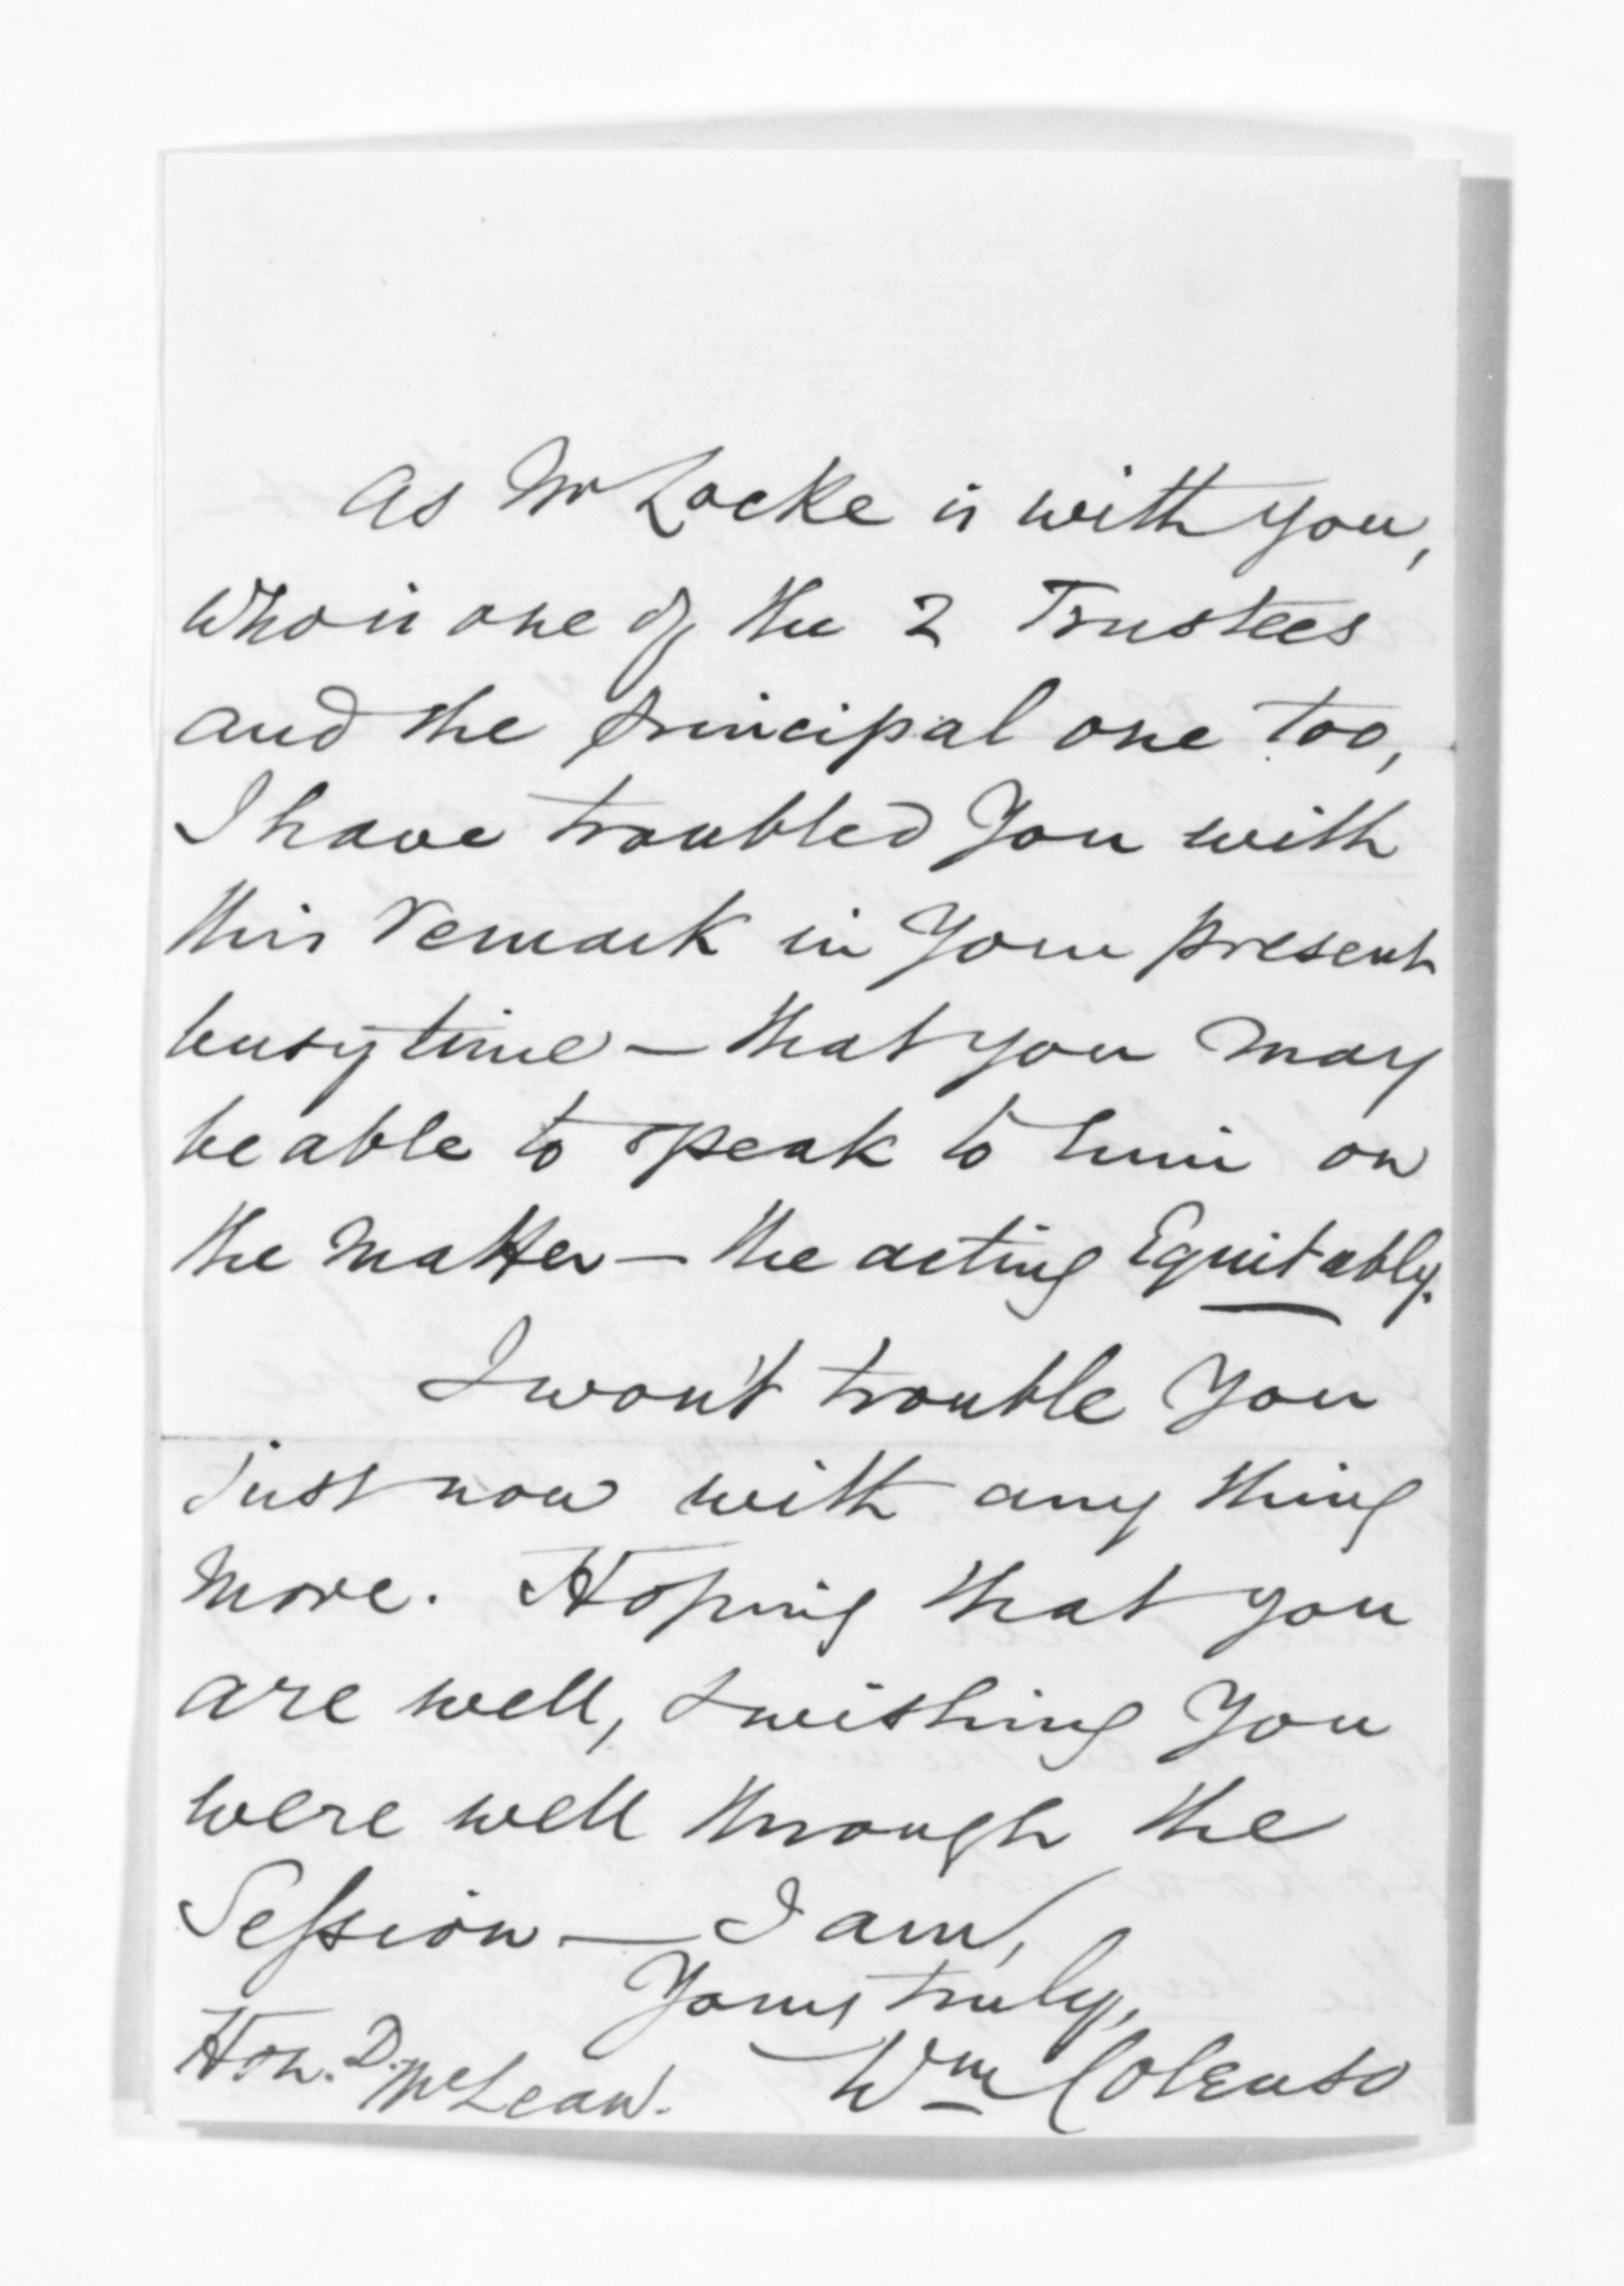 As Mr Locke is with you,
who is one of the 2 Trustees
and the principal one too,
I have troubled You with
this remark in Your present
busy time — that you may
be able to speak to him on
the matter — the acting Equitably.
I won't trouble You
just now with any thing
more. Hoping that you
are well, & wishing You
were well through the
Session — I am,
Yours truly,
Wm Colenso
Hon. D. McLean.